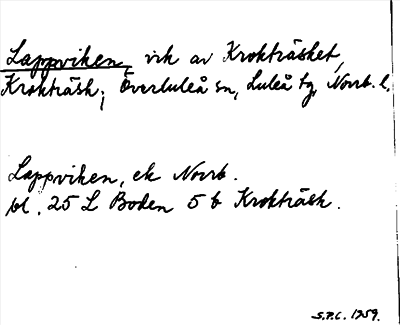 Lappviken, vik av Krokträsket,
Krokträsk, Överluleå sn, Luleå tg, Norrb. l.
Lappviken, ek Norrb.
bl. 25 L Boden 5 b Krokträsk.
S.P.C. 1959.